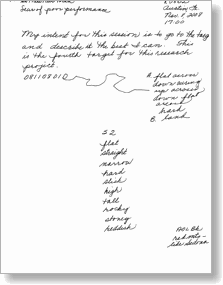 Fear of poor performance
Nov. 1, 2008
17:00
My intent for this session is to go to the target
and describe it the best I can. This
is the fourth target for this research
project.
081108010
A. flat across
down
up across
down flat
across
hard
B. land
S2
flat
straight
narrow
hard
slick
high
tall
rocky
stoney
reddish
AOL Bk
red rocks-
like Sedona